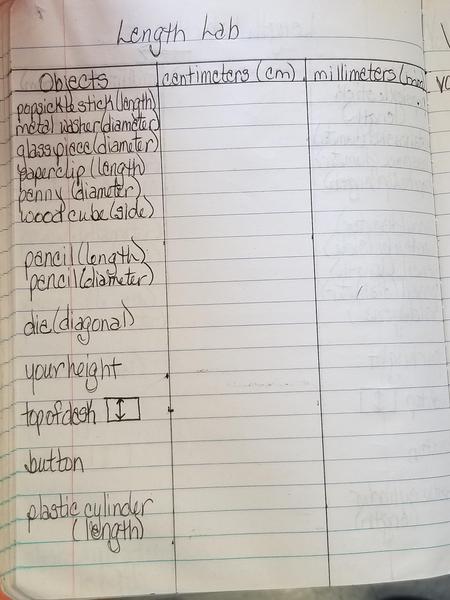 Length Lab
Objects centimeters (cm) millimeters (mm)
popsickle stick (length)
metal washer (diameter)
glass piece (diameter)
paperclip (length)
penny (diameter)
wood cube (side)
pencil (length)
pencil (diameter)
die (diagonal)
your height
top of desk
button
plastic cylinder
(length)